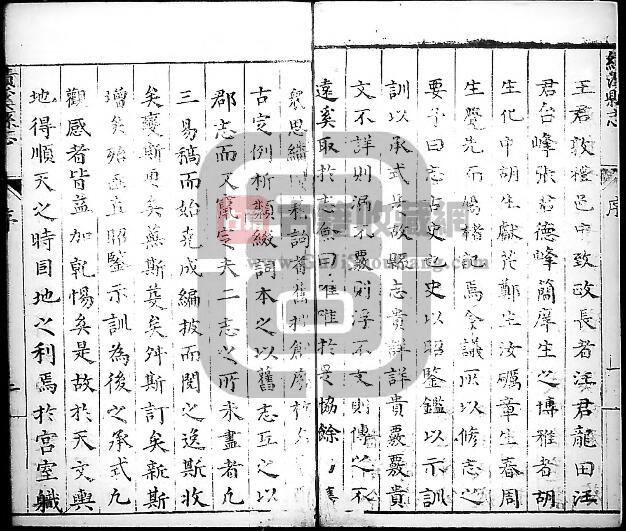 績溪縣志
序
王君敦檀邑中致政長者汪君龍田汪
君台峰張君德峰簡庠生之博雅者胡
生化中胡生獻花鄭生汝礪章生春周
生覺先而楊楷記焉僉議所以修志之
要予曰志占史也史以昭鑒鑑以示訓
訓以承式
故縣志貴詳詳貴覈覈貴
文不詳則漏不覈則浮不文則傳之不
遠奚取於志魚曰唯唯於是協餘
衆思
古定例析類綴詞本之以舊志互之以
郡志而又竄定夫二志之所未盡者凡
三易稿而始克成編披而閱之逸斯收
矣斯更矣蕪斯芟矣舛斯訂矣新斯
增矣殆亟立昭鑒示訓為後之承式凡
觀感者皆益加乾惕矣是故於天文輿
地得順天之時因地之利焉於宮室職
序